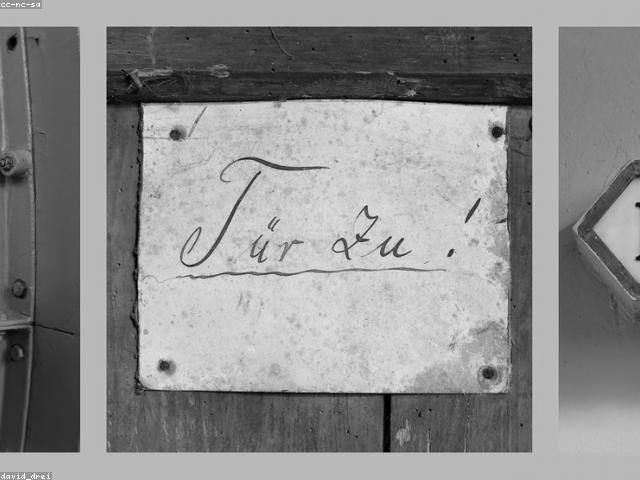 cc-nc-sa
Tür Zu !
david_drei